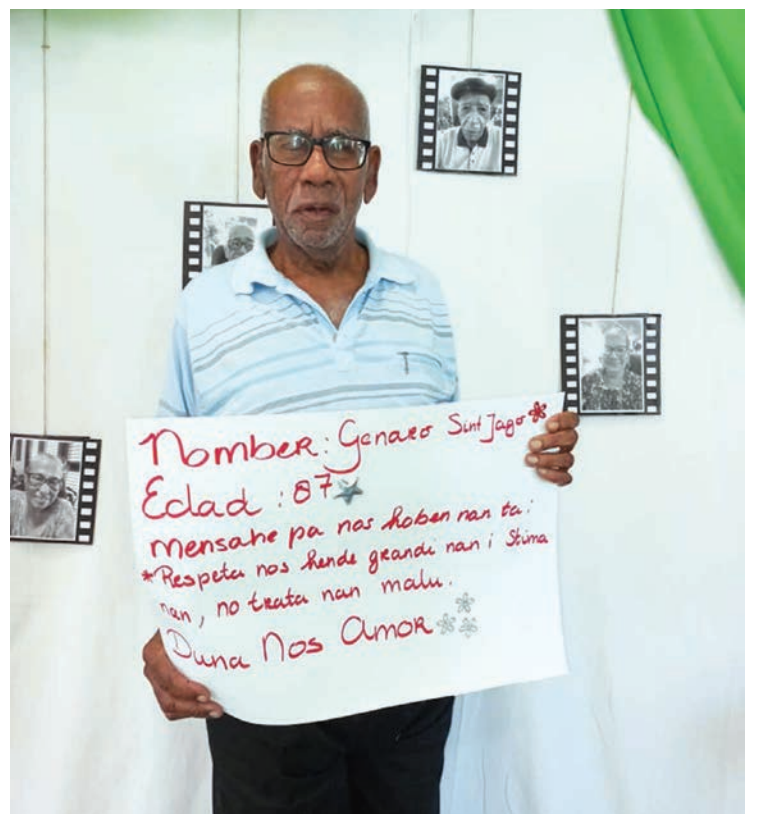 Nomber: Genaro Sint Jago
Edad : 87
mensahe pa nos hoben nan ta:
*Respeta nos hende grandi nan i Stima
nan, no trata nan malu.
Duna Nos Amor